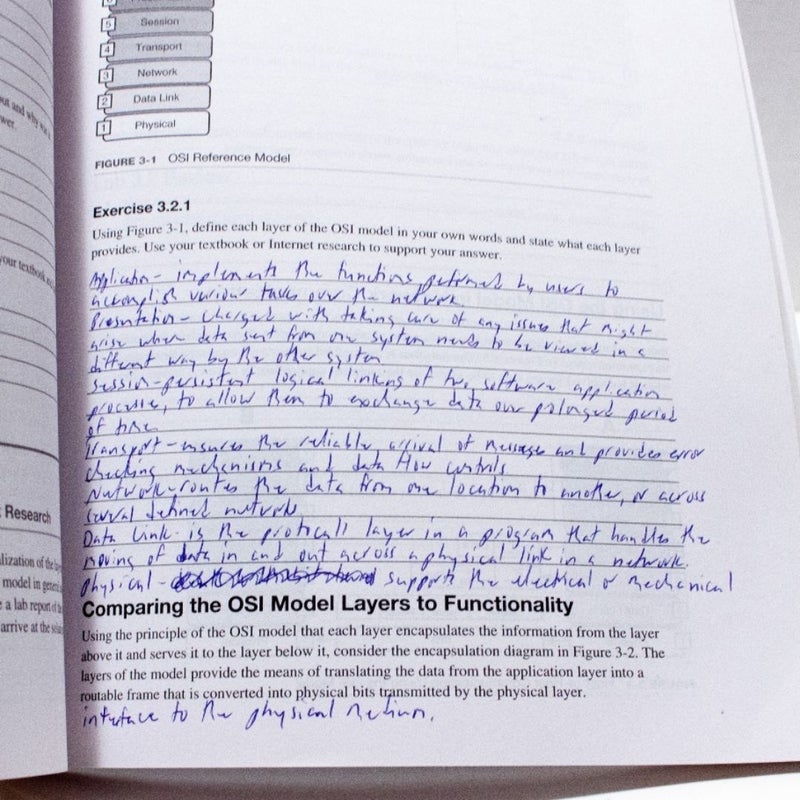 5 Session
4 Transport
3 Network
2 Data Link
1 Physical
FIGURE 3-1 OSI Reference Model
Exercise 3.2.1
Using Figure 3-1, define each layer of the OSI model in your own words and state what each layer
provides. Use your textbook or Internet research to support your answer.
Application- implements the functions performed by users to
accomplish various tasks over the network.
Presentation- charged with taking care of any issues that might
arise when data sent from one system needs to be viewed in a
different way by the other system
Session-persistent logical linking of two software application
processes, to allow them to exchange data over prolonged period
of time.
Transport-ensures the reliable arrival of messages and provides error
checking mechanisms and data flow controls
Network-routes the data from one location to another, or across
several defined networks
Data Link- is the protocall layer in a program that handles the
moving of data in and out across a physical link in a network.
Physical- supports the electrical or mechanical
Comparing the OSI Model Layers to Functionality
Using the principle of the OSI model that each layer encapsulates the information from the layer
above it and serves it to the layer below it, consider the encapsulation diagram in Figure 3-2. The
layers of the model provide the means of translating the data from the application layer into a
routable frame that is converted into physical bits transmitted by the physical layer.
interface to the physical medium.
out and why
wer.
your textbook
Research
lization of the
model in
a lab report of
arrive at the